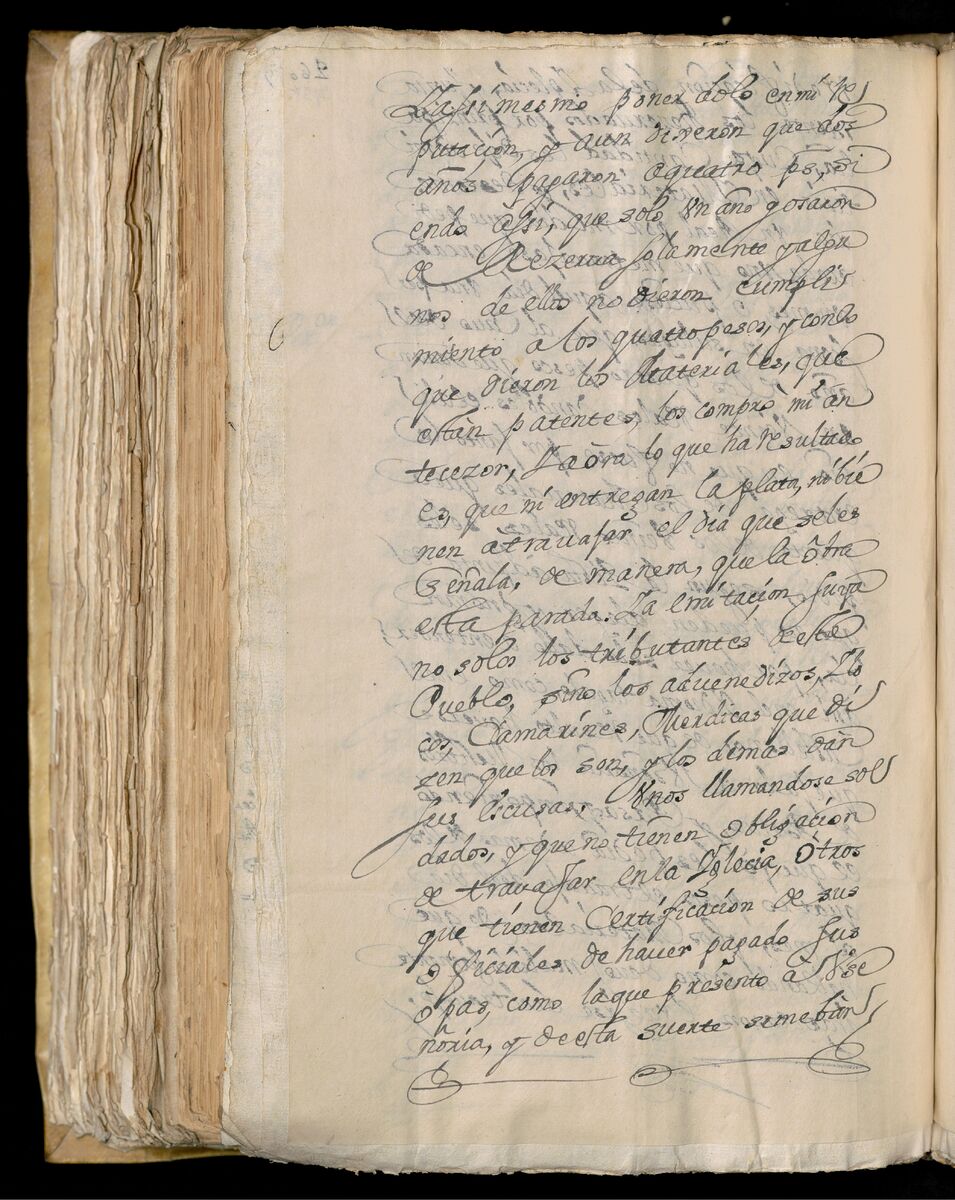 Yassi mesmo ponerdolo en mi Re
putacion, y aun dixeron que dos
años pagaron a quatro ps, si
endo assi, que solo Vn año gosaron
de Rezerva solamente y algu
nos de ellos no dieron cumpli
miento a los quatro pesos, y con lo
que dieron los Materiales, que
estàn patentes, los comprò mi àn
tecezor, Y aôra lo que ha resultado
es, que ni entregan la plata, ni bie
nen a travajar el dia que seles
Señala, de manera, que la ôbra
esta parada. Y a emitacion suya
no solos los tributantes de este
Pueblo, sino los advenedizos,
cos, Camarines, Merdicas que di
zen que los son, y los demas dàn
sus Escusas, Vnos llamandose sol
dados, y que no tienen obligacion
de travajar en la Yglecia, Otros
que tienen Certificacion de sus
oficiales de haver pagado sus
ôpas, como la que presento à Vse
ñoria, y de esta suerte se me bùr